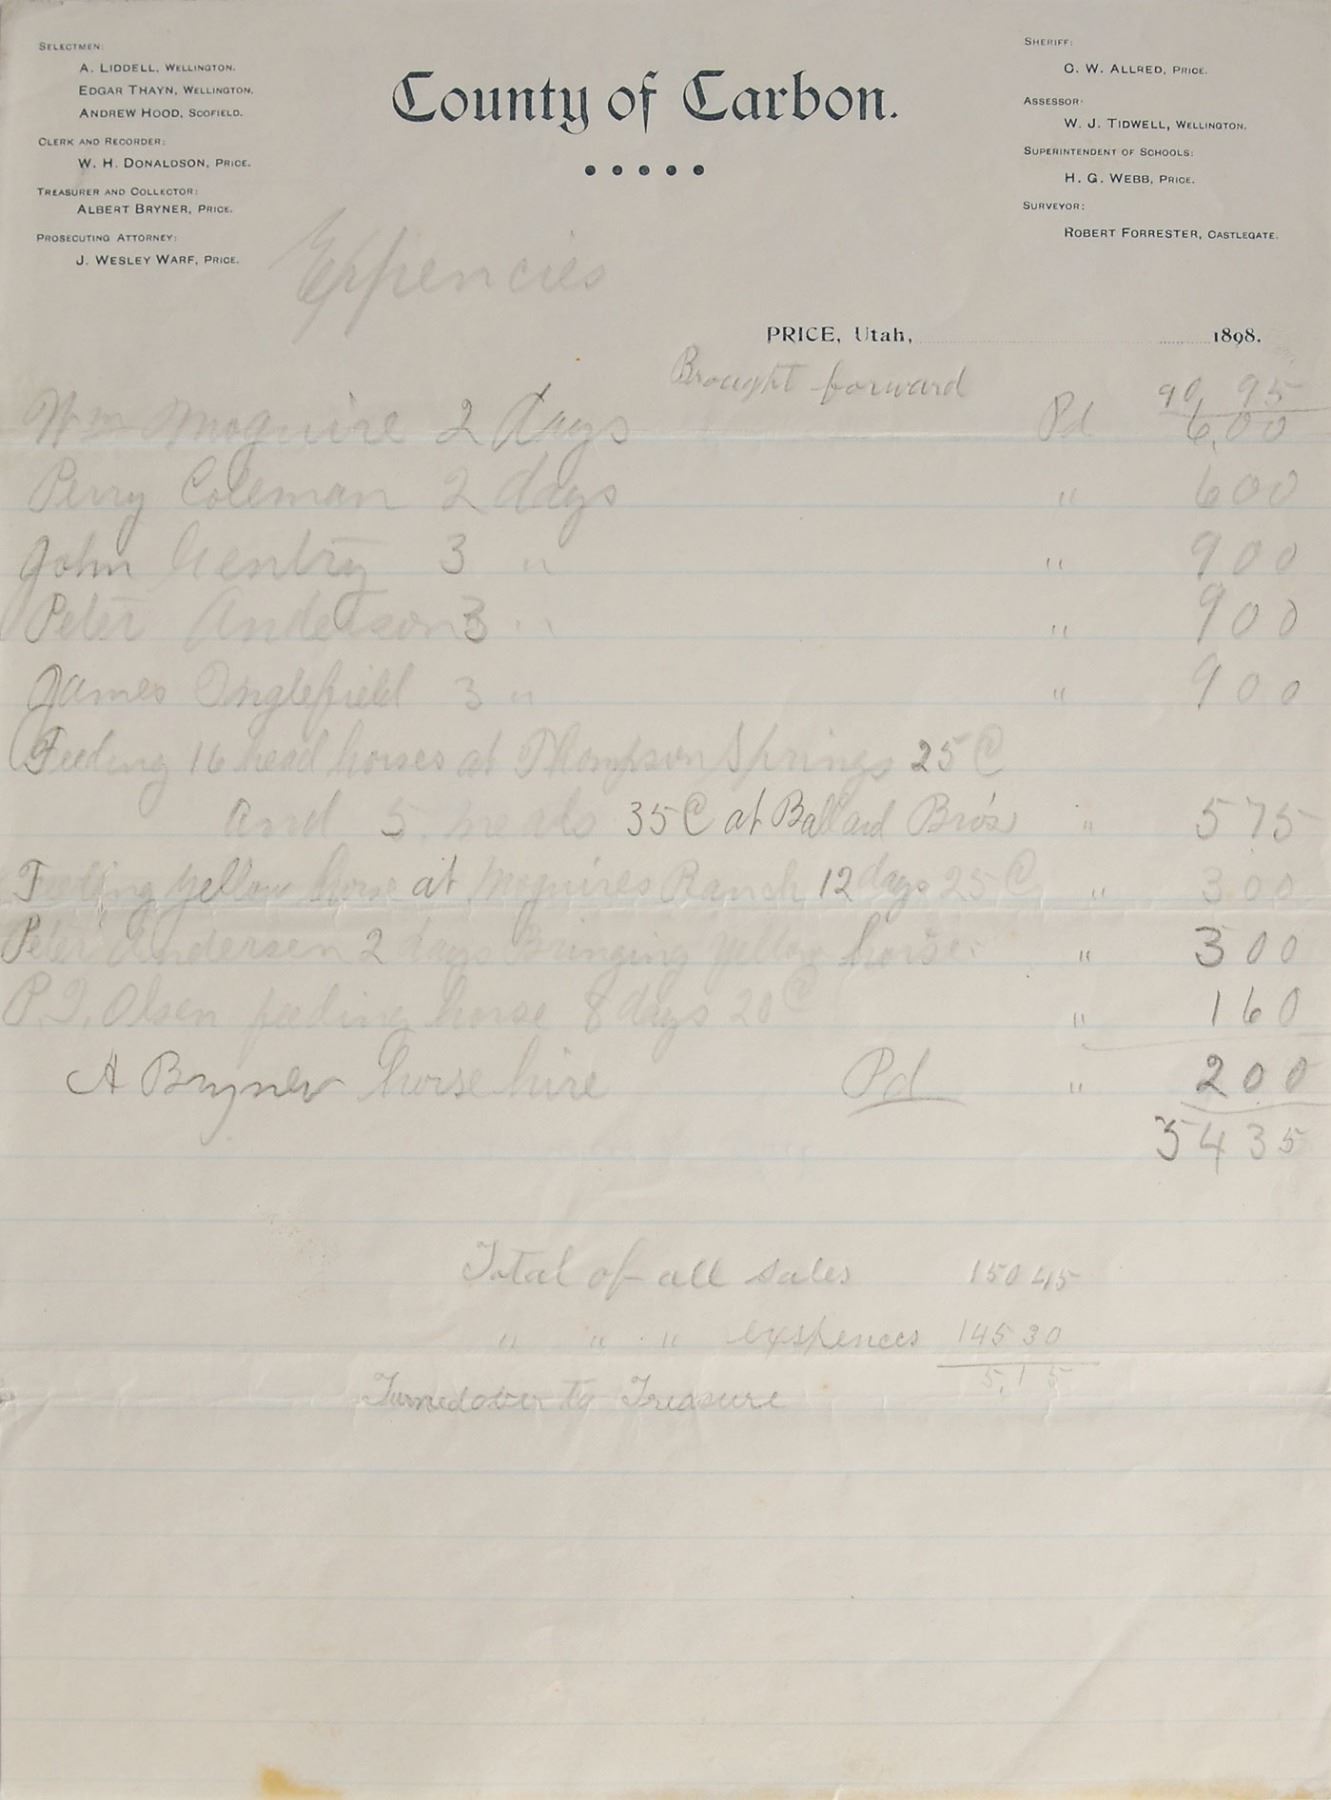 SELECTMEN:
A. LIDDELL, WELLINGTON.
EDGAR THAYN, WELLINGTON.
ANDREW HOOD, SCOFIELD.
CLERK AND RECORDER:
W. H. DONALDSON, PRICE.
TREASURER AND COLLECTOR:
ALBERT BRYNER, PRICE.
PROSECUTING ATTORNEY:
J. WESLEY WARF, PRICE.
County of Carbon.
SHERIFF:
C. W. ALLRED, PRICE.
ASSESSOR:
W. J. TIDWELL, WELLINGTON.
SUPERINTENDENT OF SCHOOLS:
H. G. WEBB, PRICE.
SURVEYOR:
ROBERT FORRESTER, CASTLEGATE.
Expencies
PRICE, Utah, 1898.
Brought forward 90,95
Wm Moguire 2 days Pd 6,00
Perry Coleman 2 days " 600
John Gentry 3 " " 900
Peter Anderson 3 " " 900
James Inglefield 3 " " 900
Feeding 16 head horses at Thompson Springs 25 C
and 5 meals 35 C at Ballard Bro's " 575
Feeding yellow horse at Moguires Ranch 12 days 25 C " 300
Peter Andersen 2 days Bringing yellow horse. " 300
P.I. Olsen feeding horse 8 days 20 C " 160
A Bryner horse hire Pd " 200
5435
Total of all sales 150 45
" " " exspences 145 30
5,15
Turned over to Treasure